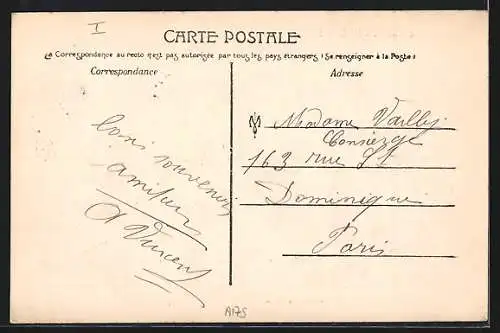 I
CARTE POSTALE
La Correspondance au recto n'est pas autorisée par tous les pays étrangers (Se renseigner à la Poste)
Correspondance
Adresse
bons souvenirs
amitiés
A Vincent
Madame Vailly
Concierge
163 rue St
Dominique
Paris
A175